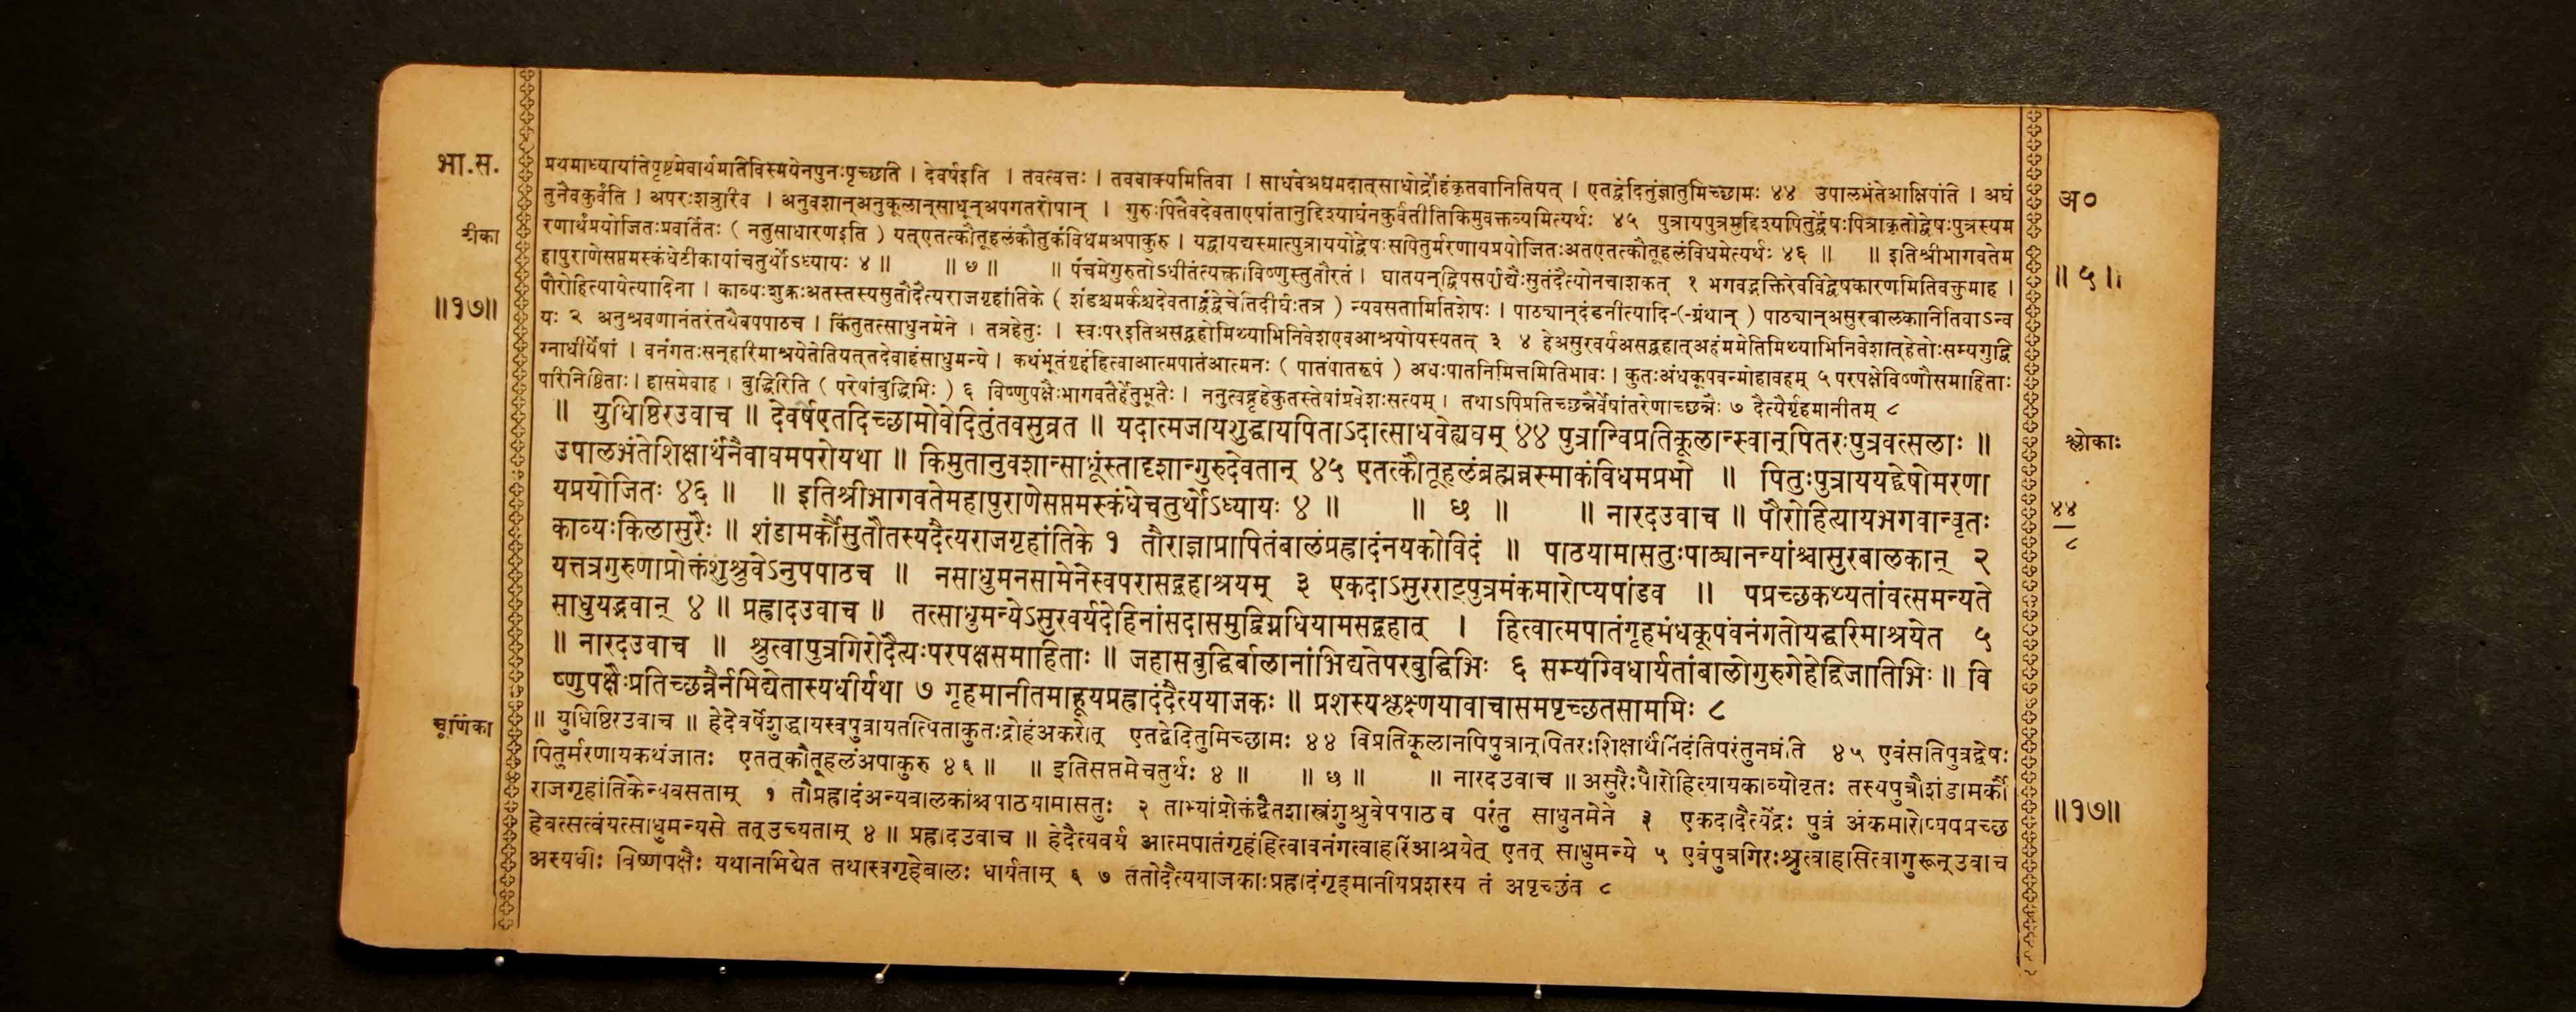 भा.स.
टीका
॥१७॥
प्रथमाध्यायांतेपृष्टमेवार्थमतिविस्मयेनपुनःपृच्छति । देवर्षइति । तवत्वत्तः । तववाक्यमितिवा । साधवेअघमदात्साधोर्द्रोहंकृतवानितियत् । एतद्वेदितुंज्ञातुमिच्छामः ४४ उपालभंतेआक्षिपंति । अघं
तुनैवकुर्वंति । अपरःशत्रुरिव । अनुवशान्अनुकूलान्साधून्अपगतरोषान् । गुरुःपितैवदेवताएषांतानुद्दिश्याघंनकुर्वंतीतिकिमुवक्तव्यमित्यर्थः ४५ पुत्रायपुत्रमुद्दिश्यपितुर्द्वेषःपित्राकृतोद्वेषःपुत्रस्यम
रणार्थंप्रयोजितःप्रवर्तितः ( नतुसाधारणइति ) यत्एतत्कौतूहलंकौतुकंविधमअपाकुरु । यद्वायद्यस्मात्पुत्राययोद्वेषःसपितुर्मरणायप्रयोजितःअतएतत्कौतूहलंविधमेत्यर्थः ४६ ॥ ॥ इतिश्रीभागवतेम
हापुराणेसप्तमस्कंधेटीकायांचतुर्थोऽध्यायः ४ ॥ ॥ ७ ॥ ॥ पंचमेगुरुतोऽधीतंत्यक्त्वाविष्णुस्तुतौरतं । घातयन्द्विपसर्पाद्यैःसुतंदैत्योनचाशकत् १ भगवद्भक्तिरेवविद्वेषकारणमितिवक्तुमाह ।
पौरोहित्यायेत्यादिना । काव्यःशुक्रःअतस्तस्यसुतौदैत्यराजगृहांतिके ( शंडश्चमर्कश्चदेवताद्वंद्वेचेतिदीर्घःतत्र ) न्यवसतामितिशेषः । पाठ्यान्दंडनीत्यादि-(-ग्रंथान् ) पाठ्यान्असुरबालकानितिवाऽन्व
यः २ अनुश्रवणानंतरंतथैवपपाठच । किंतुतत्साधुनमेने । तत्रहेतुः । स्वःपरइतिअसद्ग्रहोमिथ्याभिनिवेशएवआश्रयोयस्यतत् ३ ४ हेअसुरवर्यअसद्ग्रहात्अहंममेतिमिथ्याभिनिवेशात्हेतोःसम्यगुद्वि
ग्नाधीर्येषां । वनंगतःसन्हरिमाश्रयेतेतियत्तदेवाहंसाधुमन्ये । कथंभूतंगृहंहित्वाआत्मपातंआत्मनः ( पातंपातरूपं ) अधःपातनिमित्तमितिभावः । कुतःअंधकूपवन्मोहावहम् ५ परपक्षेविष्णौसमाहिताः
परिनिष्ठिताः । हासमेवाह । बुद्धिरिति ( परेषांबुद्धिभिः ) ६ विष्णुपक्षैःभागवतैर्हेतुभूतैः । ननुत्वद्गृहेकुतस्तेषांप्रवेशःसत्यम् । तथाऽपिप्रतिच्छन्नैर्वेषांतरेणाच्छन्नैः ७ दैत्यैर्गृहमानीतम् ८
॥ युधिष्ठिरउवाच ॥ देवर्षएतदिच्छामोवेदितुंतवसुव्रत ॥ यदात्मजायशुद्धायपिताऽदात्साधवेह्यघम् ४४ पुत्रान्विप्रतिकूलान्स्वान्पितरःपुत्रवत्सलाः ॥
उपालभंतेशिक्षार्थंनैवाघमपरोयथा ॥ किमुतानुवशान्साधूंस्तादृशान्गुरुदेवतान् ४५ एतत्कौतूहलंब्रह्मन्नस्माकंविधमप्रभो ॥ पितुःपुत्राययद्द्वेषोमरणा
यप्रयोजितः ४६ ॥ ॥ इतिश्रीभागवतेमहापुराणेसप्तमस्कंधेचतुर्थोऽध्यायः ४ ॥ ॥ छ ॥ ॥ नारदउवाच ॥ पौरोहित्यायभगवान्वृतः
काव्यःकिलासुरैः ॥ शंडामर्कौसुतौतस्यदैत्यराजगृहांतिके १ तौराज्ञाप्रापितंबालंप्रह्लादंनयकोविदं ॥ पाठयामासतुःपाठ्यानन्यांश्चासुरबालकान् २
यत्तत्रगुरुणाप्रोक्तंशुश्रुवेऽनुपपाठच ॥ नसाधुमनसामेनेस्वपरासद्ग्रहाश्रयम् ३ एकदाऽसुरराट्पुत्रमंकमारोप्यपांडव ॥ पप्रच्छकथ्यतांवत्समन्यते
साधुयद्भवान् ४ ॥ प्रह्लादउवाच ॥ तत्साधुमन्येऽसुरवर्यदेहिनांसदासमुद्विग्नधियामसद्ग्रहात् । हित्वात्मपातंगृहमंधकूपंवनंगतोयद्धरिमाश्रयेत ५
॥ नारदउवाच ॥ श्रुत्वापुत्रगिरोदैत्यःपरपक्षसमाहिताः ॥ जहासबुद्धिर्बालानांभिद्यतेपरबुद्धिभिः ६ सम्यग्विधार्यतांबालोगुरुगेहेद्विजातिभिः ॥ वि
ष्णुपक्षैःप्रतिच्छन्नैर्नभिद्येतास्यधीर्यथा ७ गृहमानीतमाहूयप्रह्लादंदैत्ययाजकः ॥ प्रशस्यश्लक्ष्णयावाचासमपृच्छतसामभिः ८
चूर्णिका
॥ युधिष्ठिरउवाच ॥ हेदेवर्षेशुद्धायस्वपुत्रायतत्पिताकुतःद्रोहंअकरोत् एतद्वेदितुमिच्छामः ४४ विप्रतिकूलानपिपुत्रान्पितरःशिक्षार्थंनिंदंतिपरंतुनघ्नंति ४५ एवंसतिपुत्रद्वेषः
पितुर्मरणायकथंजातः एतत्कौतूहलंअपाकुरु ४६ ॥ ॥ इतिसप्तमेचतुर्थः ४ ॥ ॥ छ ॥ ॥ नारदउवाच ॥ असुरैःपौरोहित्यायकाव्योवृतः तस्यपुत्रौशंडामर्कौ
राजगृहांतिकेन्यवसताम् १ तौप्रह्लादंअन्यबालकांश्चपाठयामासतुः २ ताभ्यांप्रोक्तंद्वैतशास्त्रंशुश्रुवेपपाठच परंतु साधुनमेने ३ एकदादैत्येंद्रः पुत्रं अंकमारोप्यपप्रच्छ
हेवत्सत्वंयत्साधुमन्यसे तत्उच्यताम् ४ ॥ प्रह्लादउवाच ॥ हेदैत्यवर्य आत्मपातंगृहंहित्वावनंगत्वाहरिंआश्रयेत् एतत् साधुमन्ये ५ एवंपुत्रगिरःश्रुत्वाहसित्वागुरून्उवाच
अस्यधीः विष्णपक्षैः यथानाभिद्येत तथास्वगृहेबालः धार्यताम् ६ ७ ततोदैत्ययाजकाःप्रह्लादंगृहमानीयप्रशस्य तं अपृच्छंत ८
अ०
॥ ५ ॥
श्लोकाः
४४
८
॥१७॥